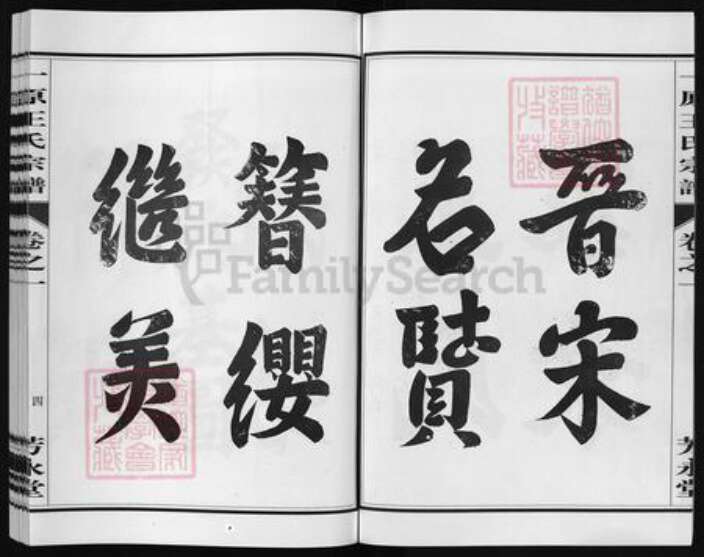 晉宋
名賢
簪纓
繼美
一原王氏宗譜
卷之一
四
芳永堂
一原王氏宗譜
卷之一
芳永堂
FamilySearch